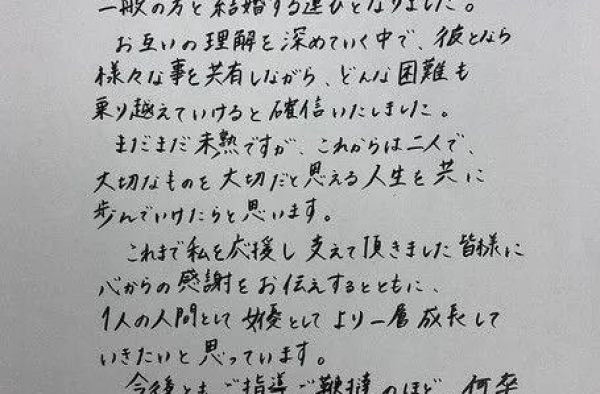 一般の方と結婚する運びとなりました。
お互いの理解を深めていく中で、彼となら
様々な事を共有しながら、どんな困難も
乗り越えていけると確信いたしました。
まだまだ未熟ですが、これからは二人で、
大切なものを大切だと思える人生を共に
歩んでいけたらと思います。
これまで私を応援し支えて頂きました皆様に
心からの感謝をお伝えするとともに、
1人の人間として女優としてより一層成長して
いきたいと思っています。
今後ともご指導ご鞭撻のほど、何卒